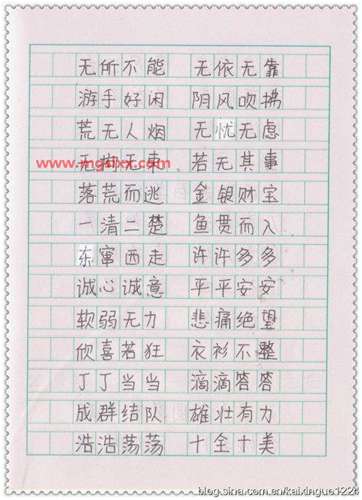 无所不能 无依无靠
游手好闲 阴风吹拂
荒无人烟 无忧无虑
无拘无束 若无其事
落荒而逃 金银财宝
一清二楚 鱼贯而入
东窜西走 许许多多
诚心诚意 平平安安
软弱无力 悲痛绝望
欣喜若狂 衣衫不整
丁丁当当 滴滴答答
成群结队 雄壮有力
浩浩荡荡 十全十美
blog.sina.com.cn/kaixingue1224